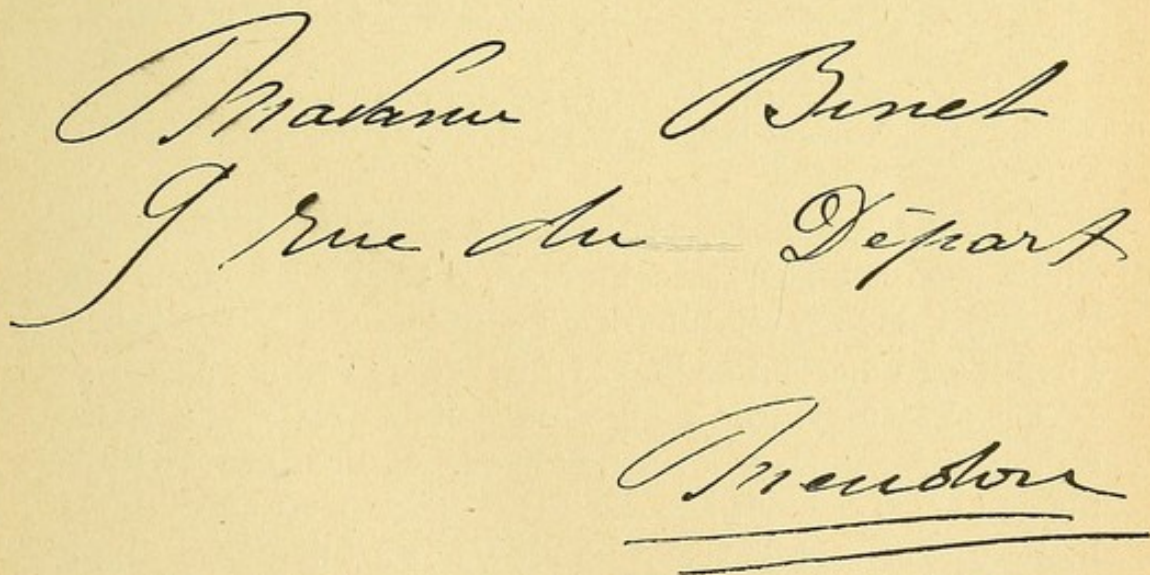 Madame Binet
9 rue du Départ
Meudon